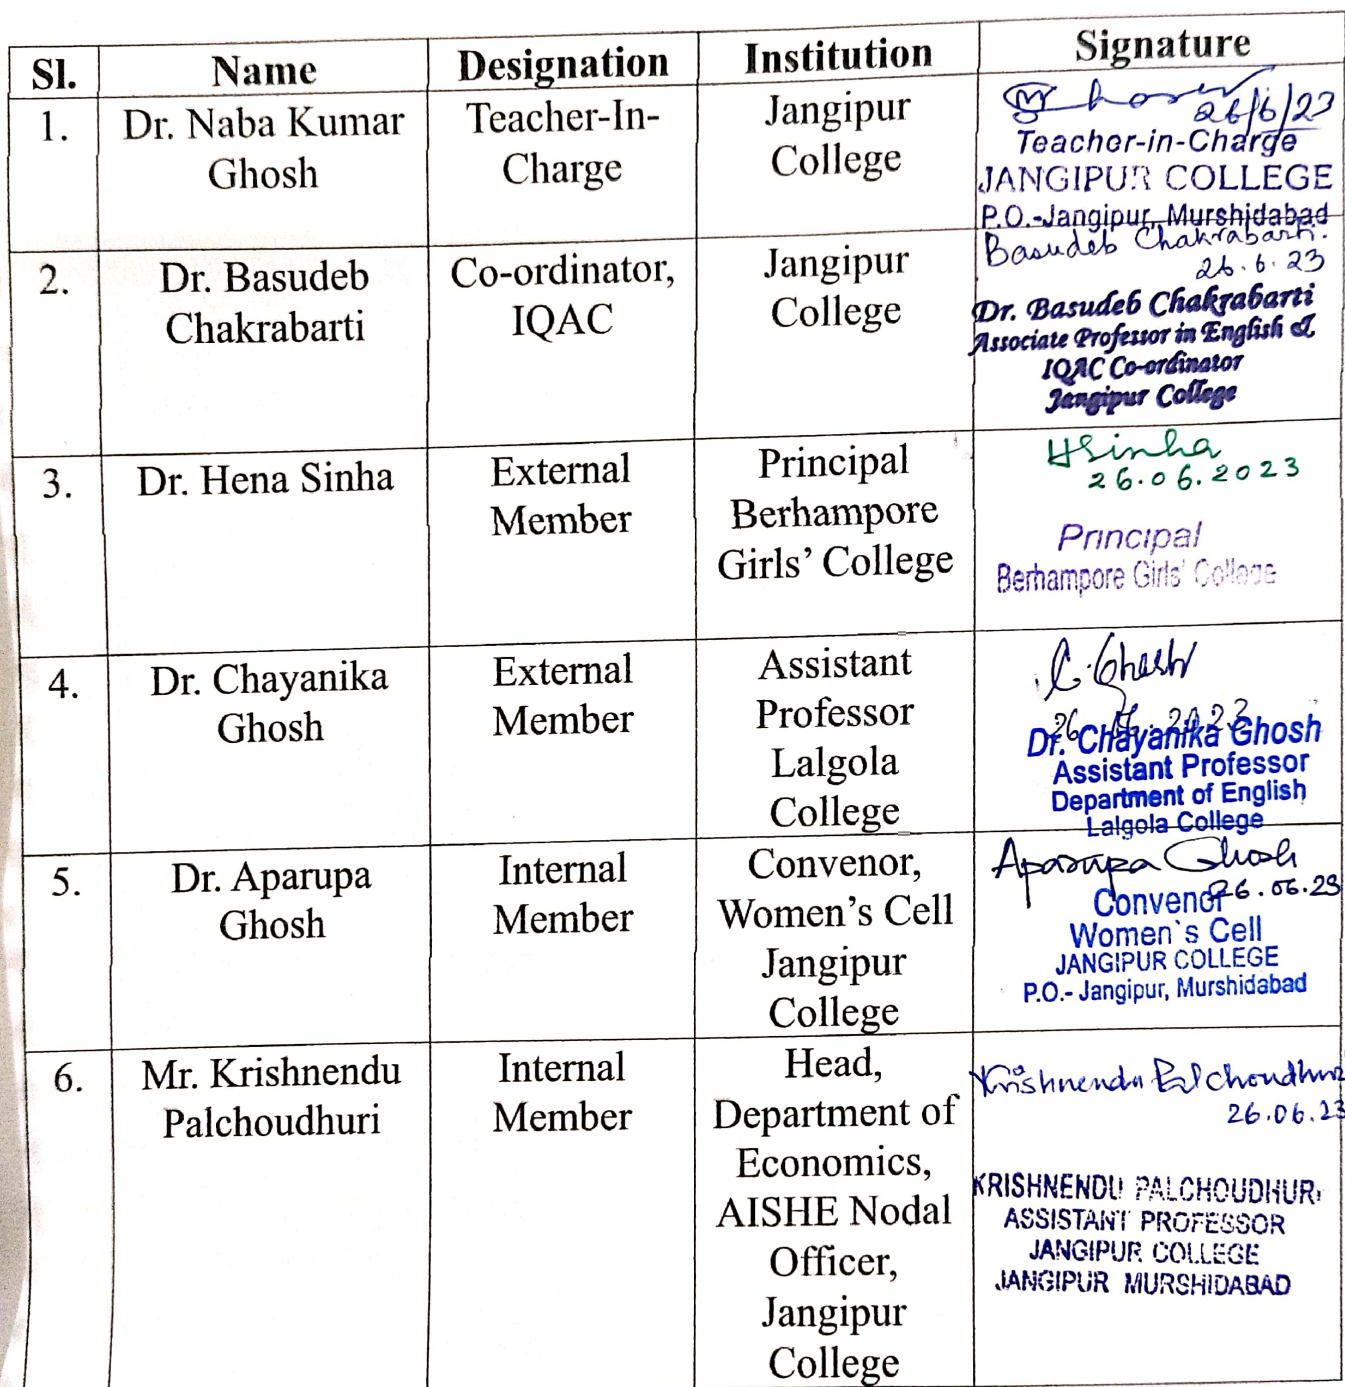 Sl. Name Designation Institution Signature
1. Dr. Naba Kumar Teacher-In- Jangipur
Ghosh Charge College
26/6/23
Teacher-in-Charge
JANGIPUR COLLEGE
P.O.-Jangipur, Murshidabad
2. Dr. Basudeb Co-ordinator, Jangipur
Chakrabarti IQAC College
Basudeb Chakrabarti.
26.6.23
Dr. Basudeb Chakrabarti
Associate Professor in English &
IQAC Co-ordinator
Jangipur College
3. Dr. Hena Sinha External Principal
Member Berhampore
Girls’ College
HSinha
26.06.2023
Principal
Berhampore Girls' College
4. Dr. Chayanika External Assistant
Ghosh Member Professor
Lalgola
College
C. Ghosh
26.06.2023
Dr. Chayanika Ghosh
Assistant Professor
Department of English
Lalgola College
5. Dr. Aparupa Internal Convenor,
Ghosh Member Women’s Cell
Jangipur
College
Aparupa Ghosh
26.06.23
Convenor
Women`s Cell
JANGIPUR COLLEGE
P.O.- Jangipur, Murshidabad
6. Mr. Krishnendu Internal Head,
Palchoudhuri Member Department of
Economics,
AISHE Nodal
Officer,
Jangipur
College
Krishnendu Palchoudhuri
26.06.23
KRISHNENDU PALCHOUDHURI
ASSISTANT PROFESSOR
JANGIPUR COLLEGE
JANGIPUR MURSHIDABAD